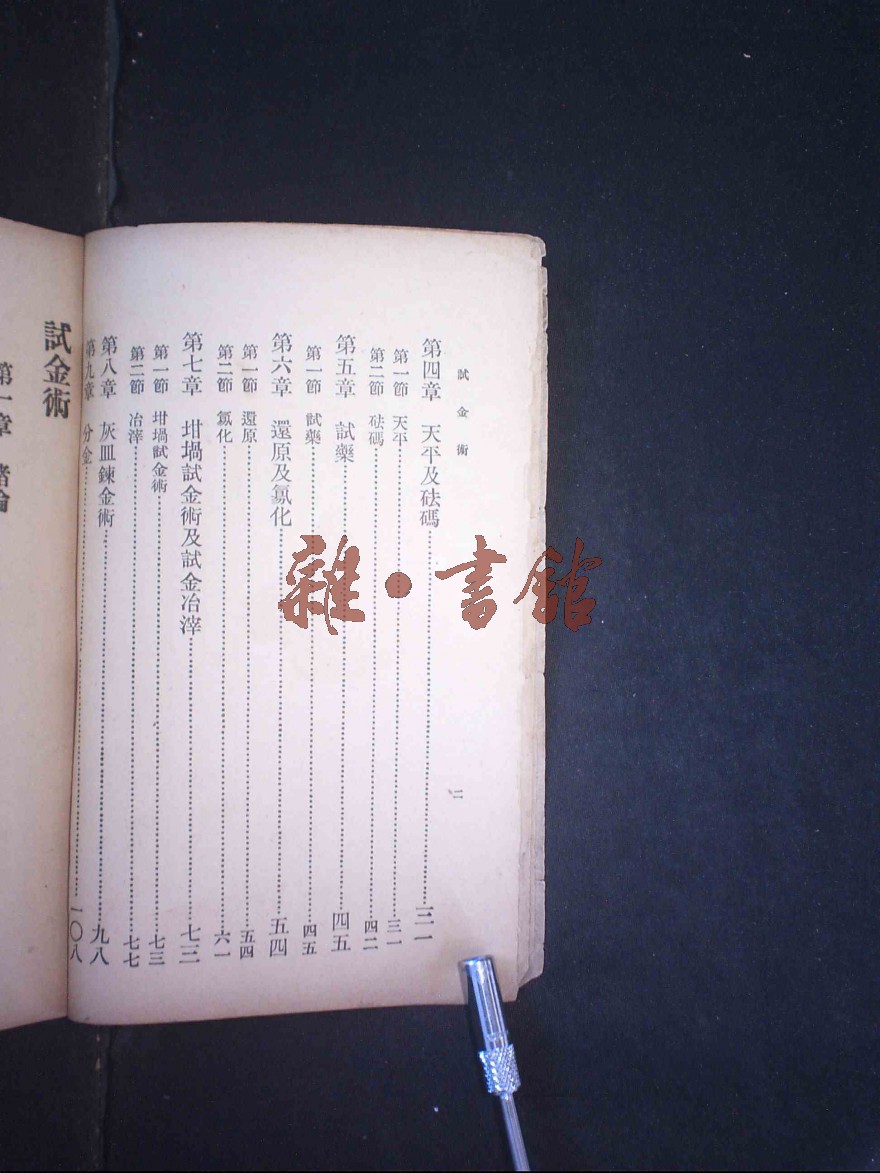 試金術
二
第四章 天平及砝碼 三一
第一節 天平 三一
第二節 砝碼 四二
第五章 試藥 四五
第一節 試藥 四五
第六章 還原及氯化 五四
第一節 還原 五四
第二節 氯化 六一
第七章 坩堝試金術及試金冶滓 七三
第一節 坩堝試金術 七三
第二節 冶滓 七七
第八章 灰皿鍊金術 九八
第九章 分金 一〇八
試金術
第一章 緒論
雜·書館